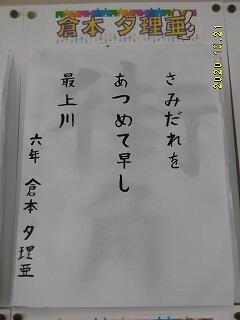 倉本 夕理亜
さみだれを
あつめて早し
最上川
六年 倉本 夕理亜
2020.10.21